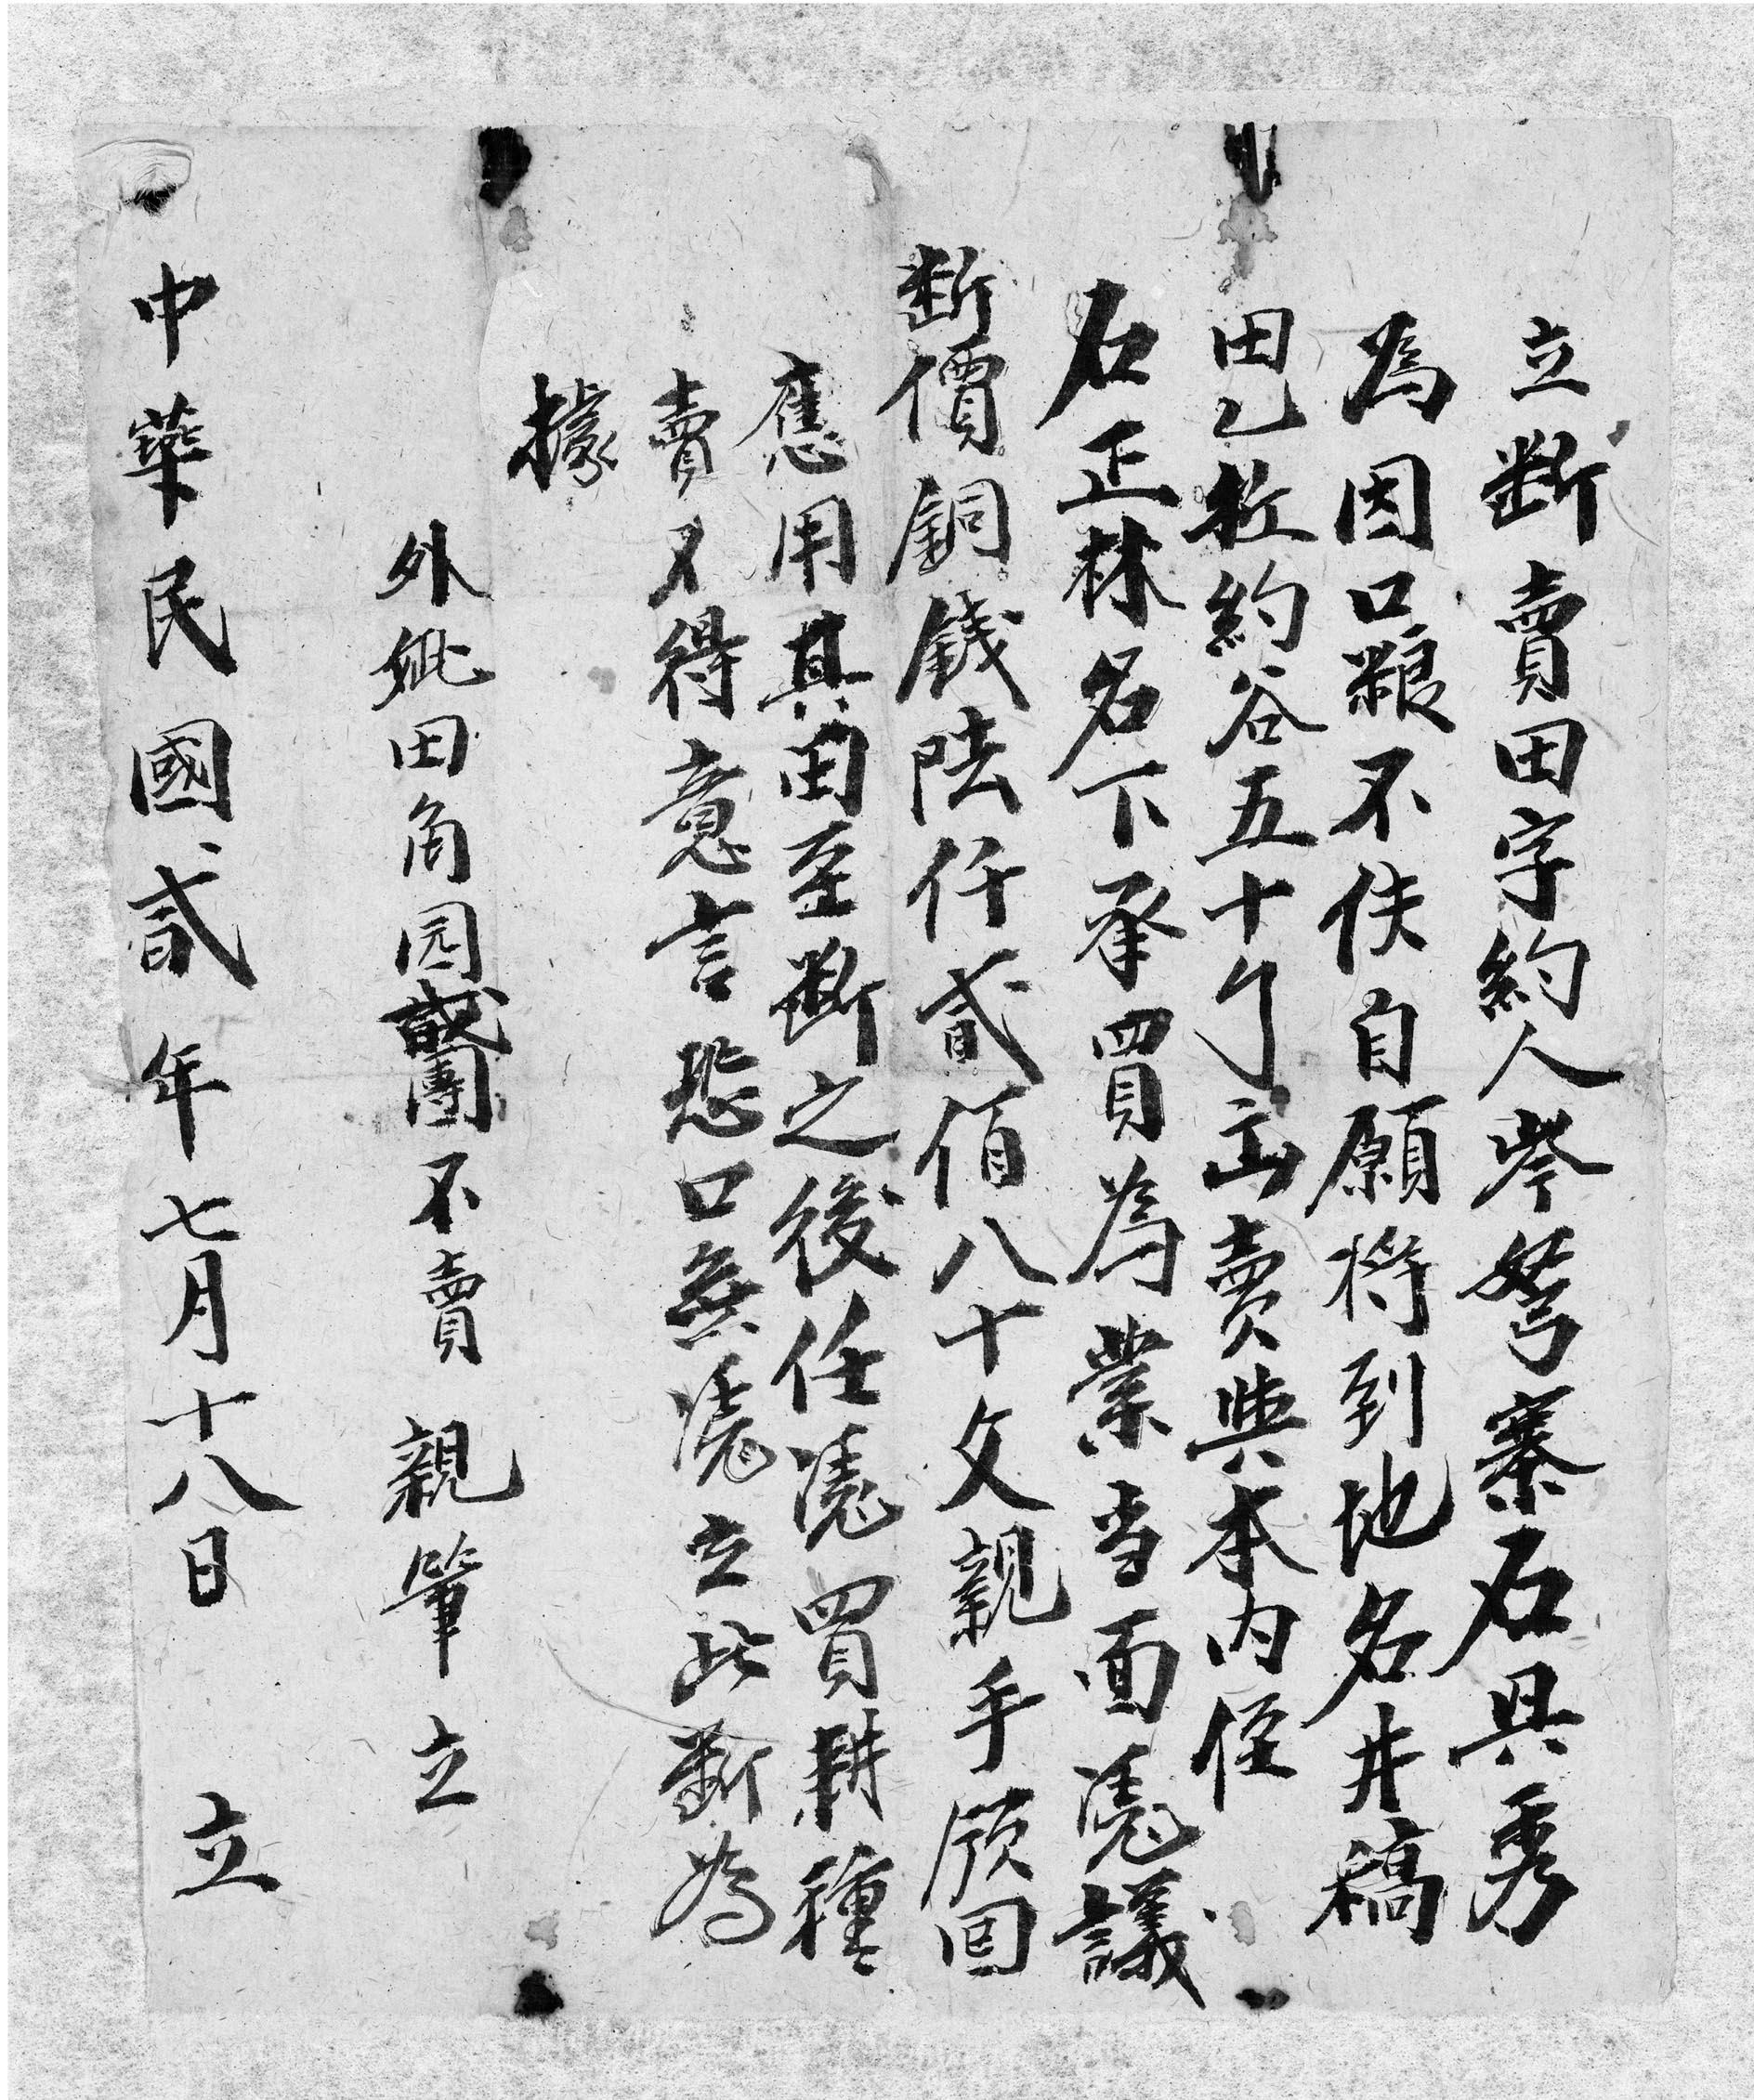 立断賣田字約人岑努寨石具秀
為因口粮不佚自愿將到地名井稿
田乙坵約谷五十丂出賣與本内侄
石正林名下承買為業当面憑議
断價銅錢陸仟貳佰八十文親手领回
應用其田至断之後任憑買耕種
賣不得意言恐口無憑立此斷為
據
外田角园團不賣 親筆 立
中華民國貳年七月十八日 立